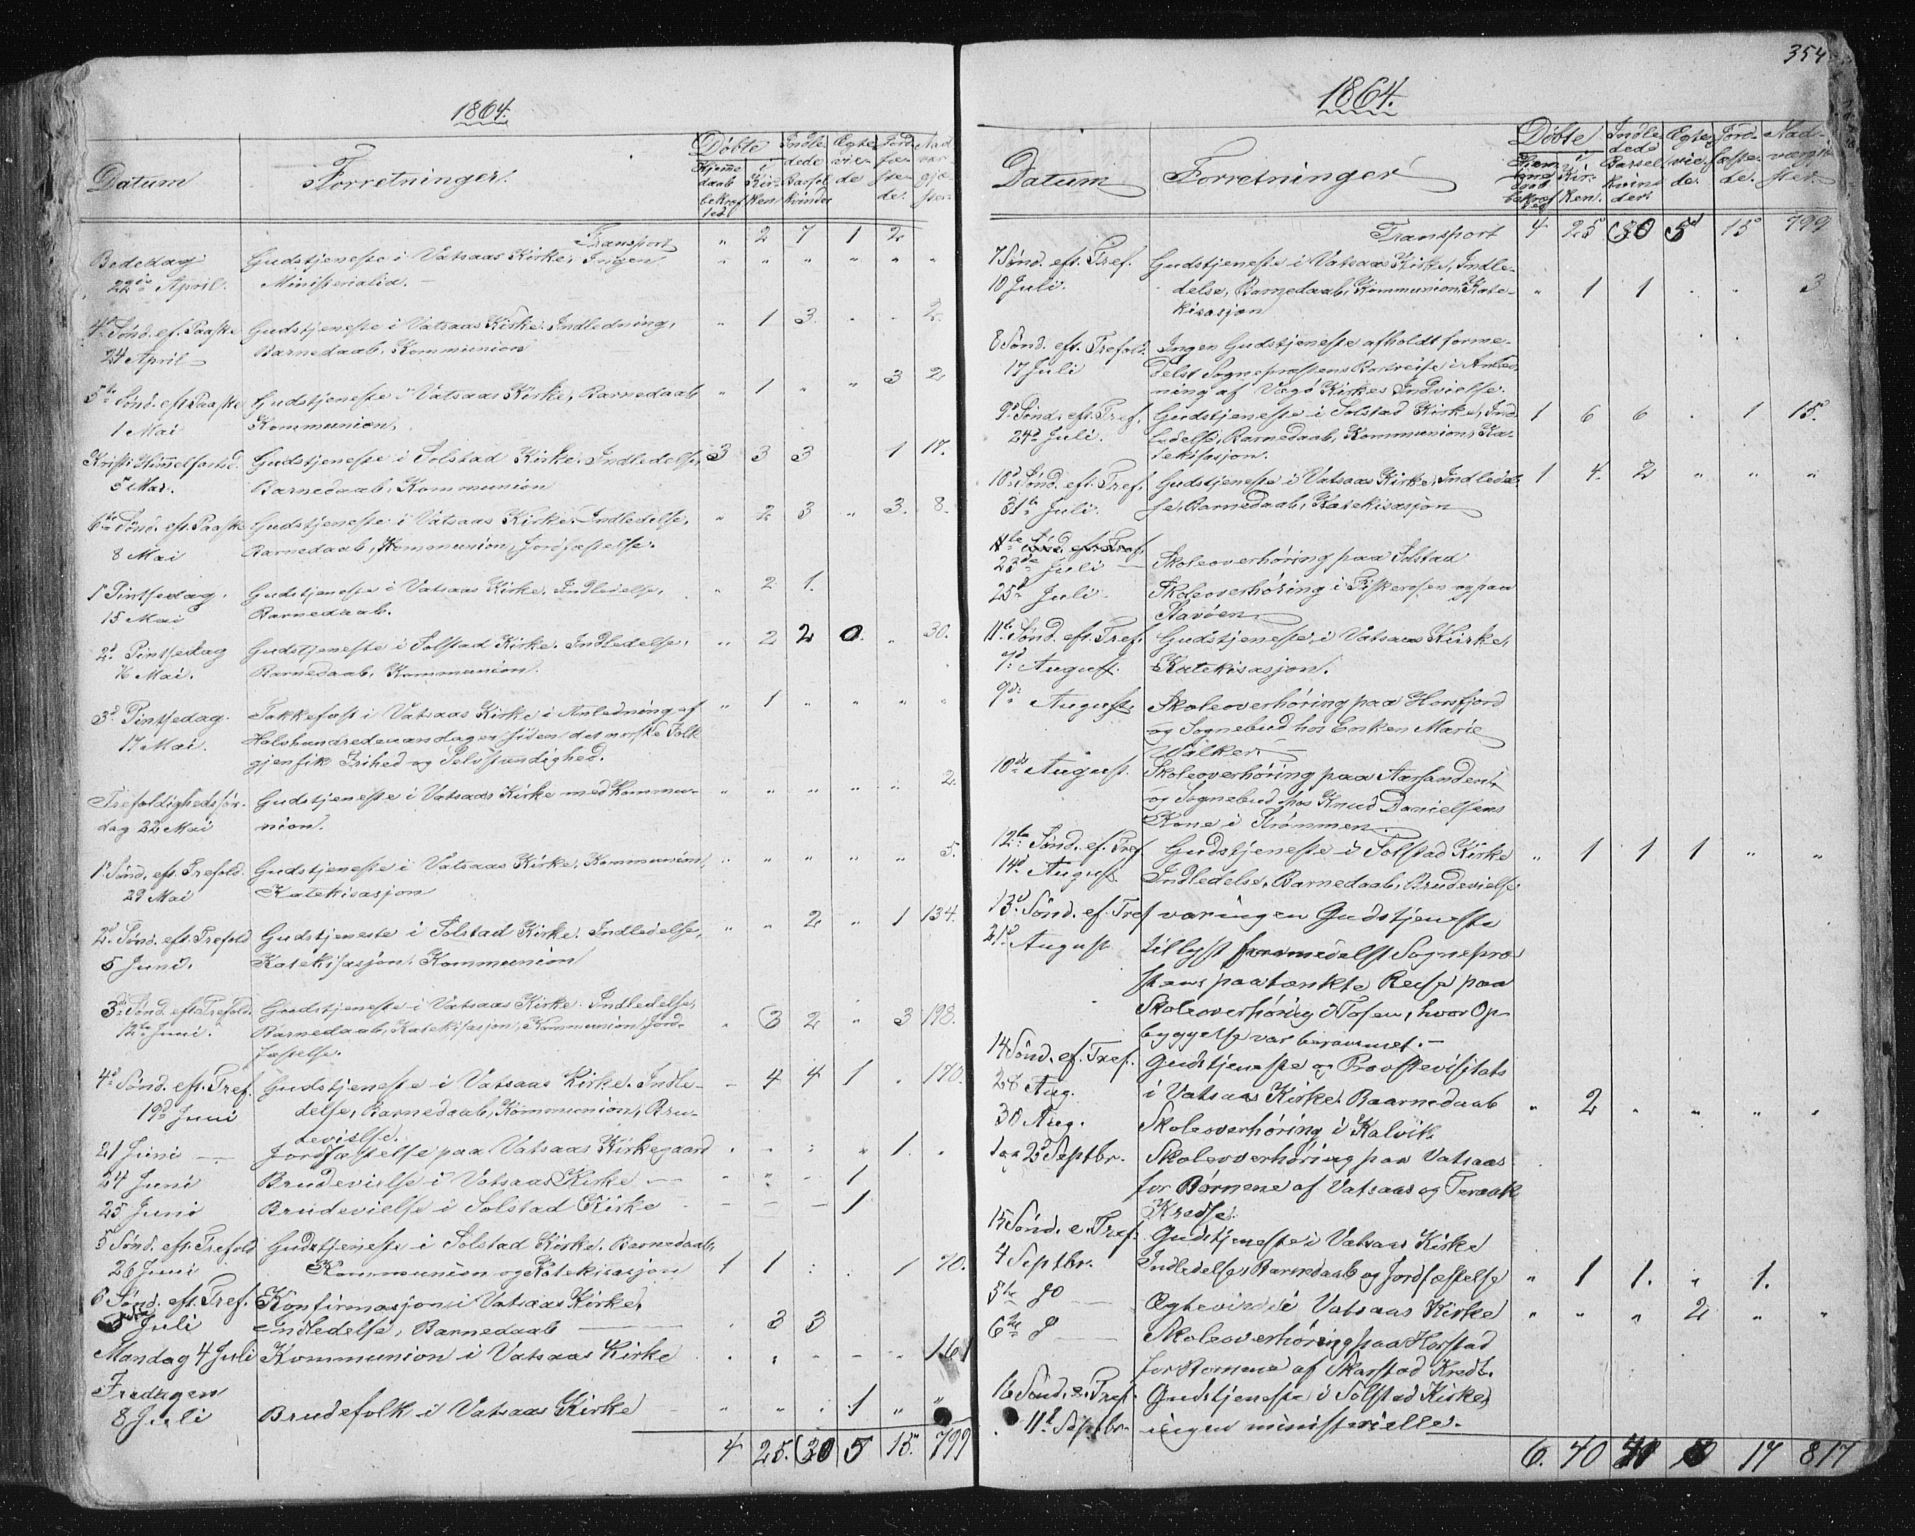 1864.
Datum
Forretninger.
Døbte
Hjemmedaab bekræfted
i Kirken
Indledede Barselkvinder
Ægteviede
Jordfæstede.
Nadvergjæster.
Transport " 2 7 1 2
Bededag Gudstjeneste i Vatsaas Kirke, Ingen " " " " " "
22de April. Ministerialia. –
4de Sønd. ef. Paaske Gudstjeneste i Vatsaas Kirke. Indledning, " 1 3 . . 2.
24 April – Barnedaab, Kommunion
5te Sønd. eft. Paaske Gudstjeneste i Vatsaas Kirke, Barnedaab " 1 " " 3 2
1 Mai Kommunion.
Kristi Himmelfartsd. Gudstjeneste i Solstad Kirke. Indledelse, 3 3 3 1 17.
5 Mai. Barnedaab, Kommunion
6te Sønd. eft. Paaske Gudstjeneste i Vatsaas Kirke. Indledelse, " 2 3 " 3. 8.
8 Mai Barnedaab, Kommunion, Jordfæstelse.
1 Pintsedag. Gudstjeneste i Vatsaas Kirke. Indledelse, " 2 1.
15 Mai Barnedaab.
2d Pintsedag Gudstjeneste i Solstad Kirke. Indledelse, " 2 2 0. " 30.
16 Mai. Barnedaab, Kommunion.
3d Pintsedag. Takkefest i Vatsaas Kirke i Anledning af " 1 " " " "
17 Mai. Halvhundredeaarsdagen siden det norske Folk
gjenfik Frihed og Selvstændighed.
Trefoldighedssøn- Gudstjeneste i Vatsaas Kirke med Kommu- " " " " " 2
dag 22 Mai nion.
1 Sønd. eft. Trefold. Gudstjeneste i Vatsaas Kirke, Kommunion, " " " " " 5.
29 Mai Katekisasjon
2d Sønd. eft. Trefold Gudstjeneste i Solstad Kirke. Indledelse, " " 2 " 1 134.
5 Juni. Katekisasjon. Kommunion
3d Sønd. eft. Trefold. Gudstjeneste i Vatsaas Kirke. Indledelse, . 3 2 " 3 198.
12te Juni. Barnedaab, Katekisasjon, Kommunion, Jord-
fæstelse.
4d Sønd. eft. Tref. Gudstjeneste i Vatsaas Kirke. Indle- – 4 4 1 . 170.
19d Juni delse, Barnedaab, Kommunion, Bru-
devielse.
21 Juni — Jordfæstelse paa Vatsaas Kirkegaard . . . " 1. .
24 Juni Brudevielse i Vatsaas Kirke – – 1
25 Juni Brudevielse i Solstad Kirke – – – 1
5 Sønd. eft. Trefold Gudstjeneste i Solstad Kirke. Barnedaab,
26 Juni Kommunion og Katekisasjon 1 1 . . 1 70.
6 Sønd. eft. Tref. Konfirmasjon i Vatsaas Kirke,
Juli Indledelse, Barnedaab — . 3 3
Mandag 4 Juli Kommunion i Vatsaas Kirke . . . – – 161
Fredagen
8 Juli Brudefolk i Vatsaas Kirke – " " . 1 " "
4 25. 30 5 15. 799
354
1864.
Datum
Forretninger
Døbte
Hjemmedaab bekræfted
i Kirken.
Indledede Barselkvinder.
Ægteviede.
Jordfæstede.
Nadvergjæster.
Transport 4 25 30 5 15 799
7 Sønd. eft. Tref. Gudstjeneste i Vatsaas Kirke, Indle-
10 Juli. delse, Barnedaab, Kommunion, Kate- " 1 1 . . 3
kisasjon
8 Sønd. eft. Trefold. Ingen Gudstjeneste afholdt forme-
17 Juli delst Sognepræstens Bortreise i Anled-
ning af Vegø Kirkes Indvielse.
9d Sønd. eft. Tref. Gudstjeneste i Solstad Kirke, Ind- 1 6 6 . 1 15.
24d Juli. ledelse, Barnedaab, Kommunion, Ka-
tekisasjon.
10d Sønd. eft. Tref. Gudstjeneste i Vatsaas Kirke, Indledel- 1 4. 2 " " "
31te Juli. se, Barnedaab, Katekisasjon
11te Sønd. eft. Tref.
23de Juli — Skoleoverhøring paa Solstad
25d Juli. Skoleoverhøring i Fiskerosen og paa
Havøen
11te Sønd. eft. Tref. Gudstjeneste i Vatsaas Kirke,
7d August. Katekisasjon.
9de August Skoleoverhøring paa Horsfjord
og Sognebud hos Enken Marie
10de August. Skoleoverhøring paa
og Sognebud hos Knud Danielsens
Kone i Strømmen.
12te Sønd. ef. Tref Gudstjeneste i Solstad Kirke " 1 1 1 " "
14d August Indledelse, Barnedaab, Brudevielse
13d Sønd. ef. Tref var ingen Gudstjeneste
21d August tillyst formedelst Sognepræ-
stens paatænkte Reise paa
Skoleoverhøring i Tosen, hvor Op-
byggelse var berammet. –
14 Sønd. ef. Tref. Gudstjeneste og Provstevisitats
28 Aug. i Vatsaas Kirke. Baarnedaab " 2 " " " "
30 Aug. Skoleoverhøring i Kalvik.
1 og 2d Septbr. Skoleoverhøring paa Vatsaas
for Børnene af Vatsaas og Teraak
Kredse.
15 Sønd. e. Tref. Gudstjeneste i Vatsaas Kirke
4 Septbr. Indledelse, Barnedaab og Jordfæstelse " 1 1. " 1.
5te do — Ægteviede i Vatsaas Kirke " " " 2 " "
6te d — Skoleoverhøring paa Horstad
for Børnene af Skarstad Kreds.
16 Sønd. e. Tref. Gudstjeneste i Solstad Kirke,
11d Septbr. ingen ministerielle.
6. 40 41 8 17 817